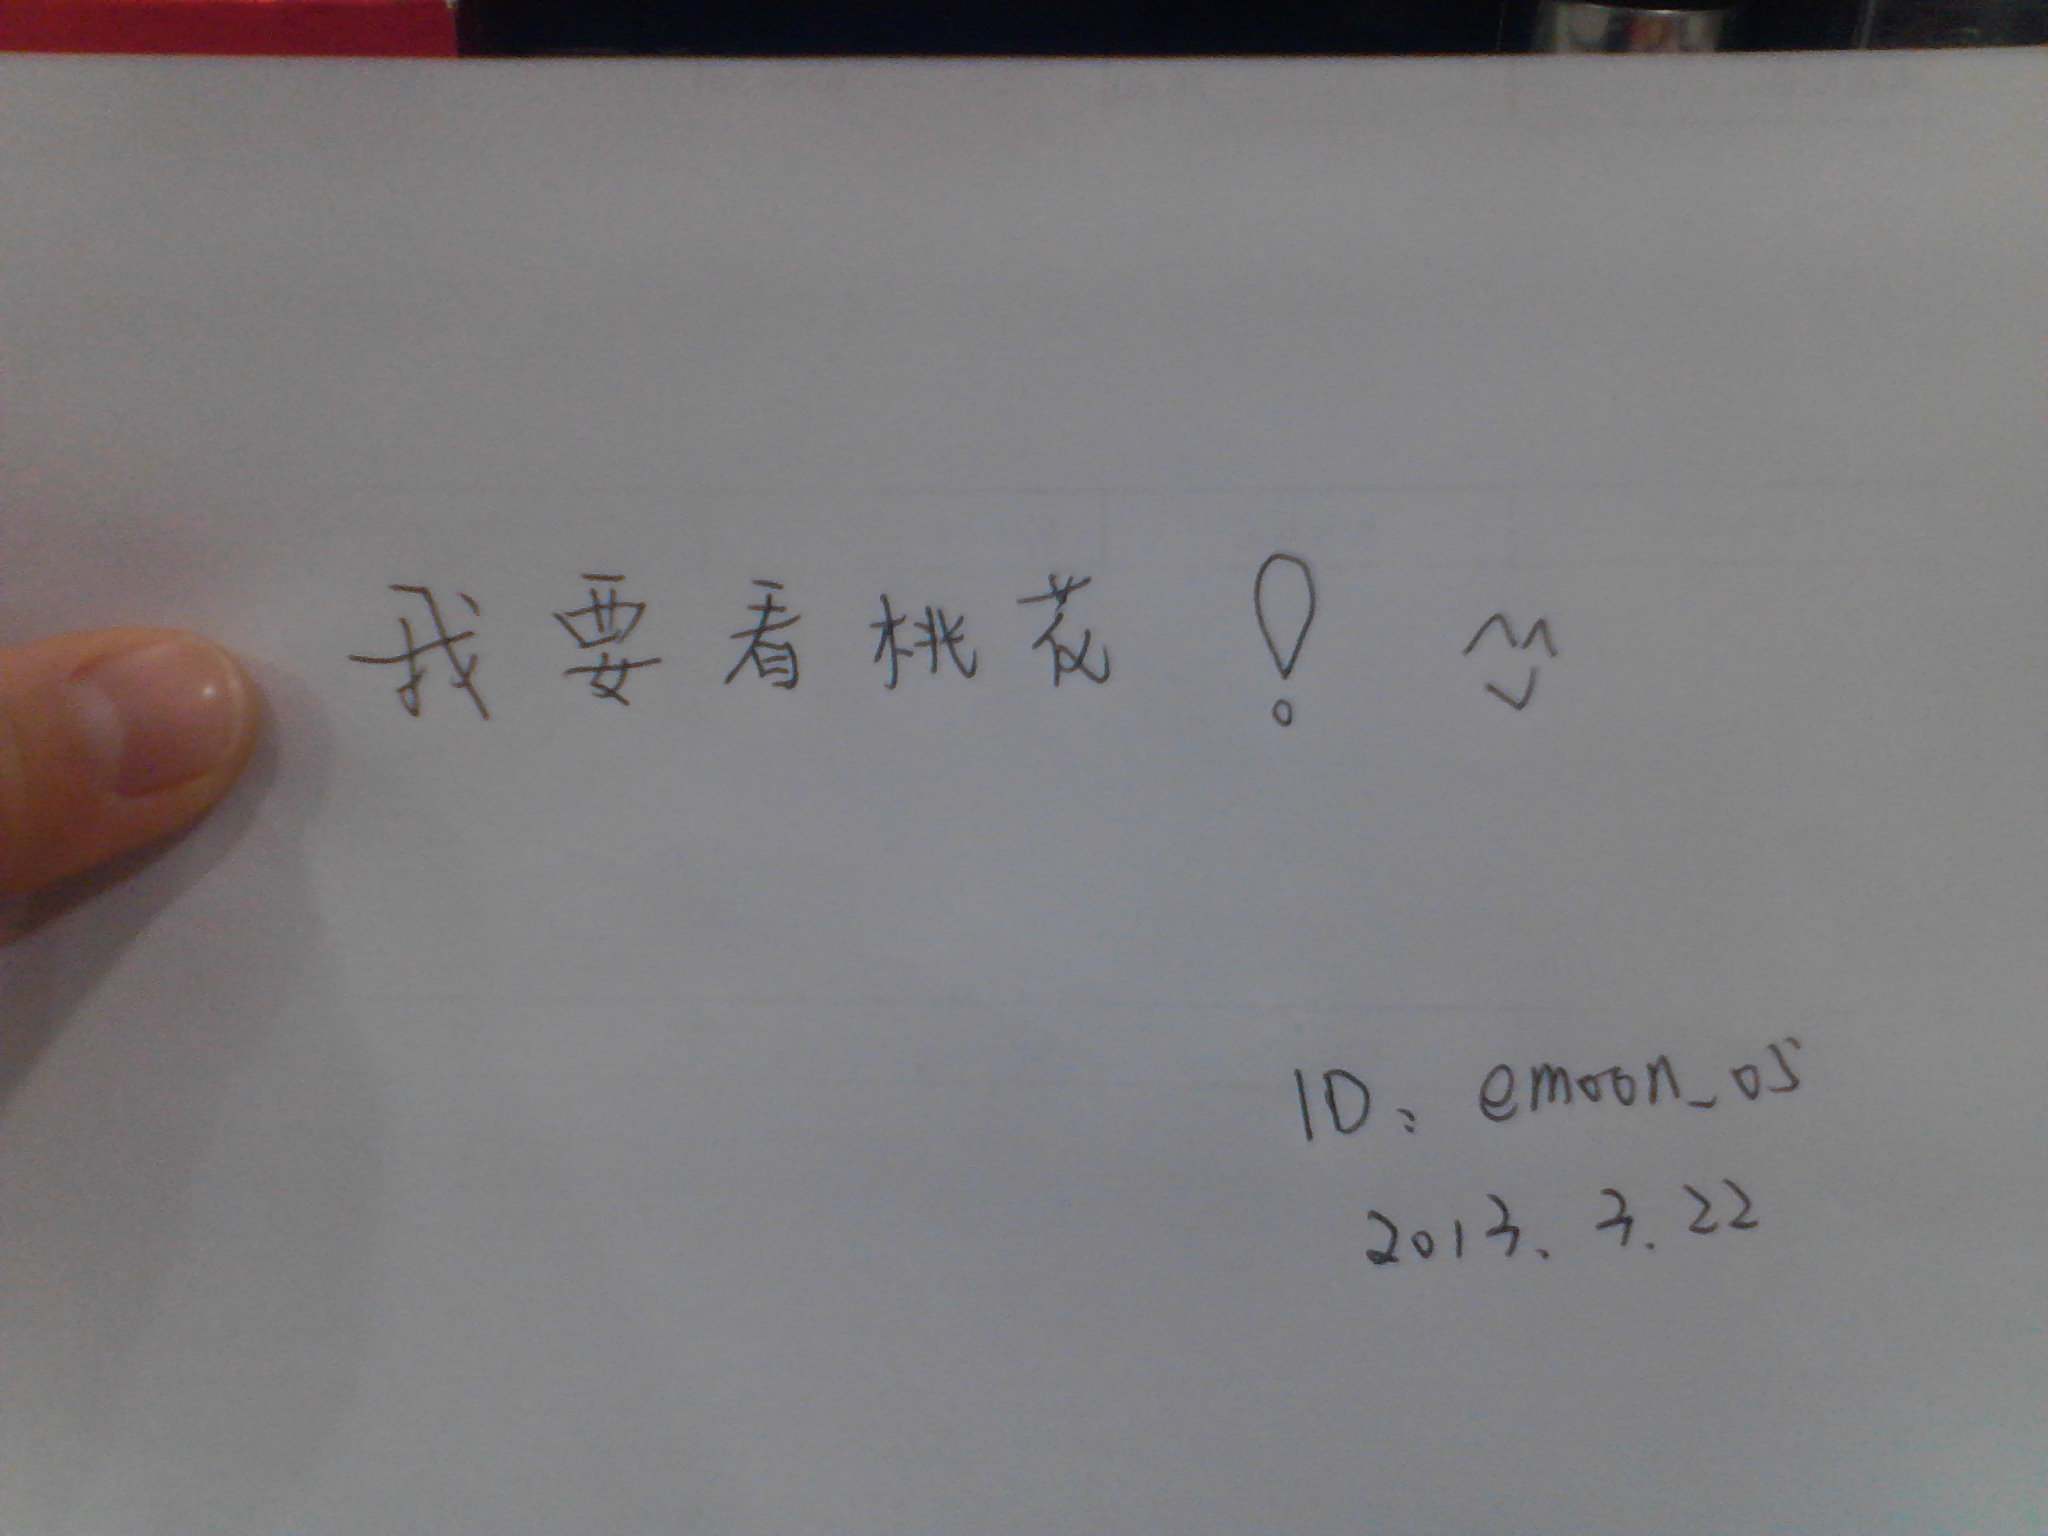 我要看桃花！
ID：emoon_os
2013.3.22